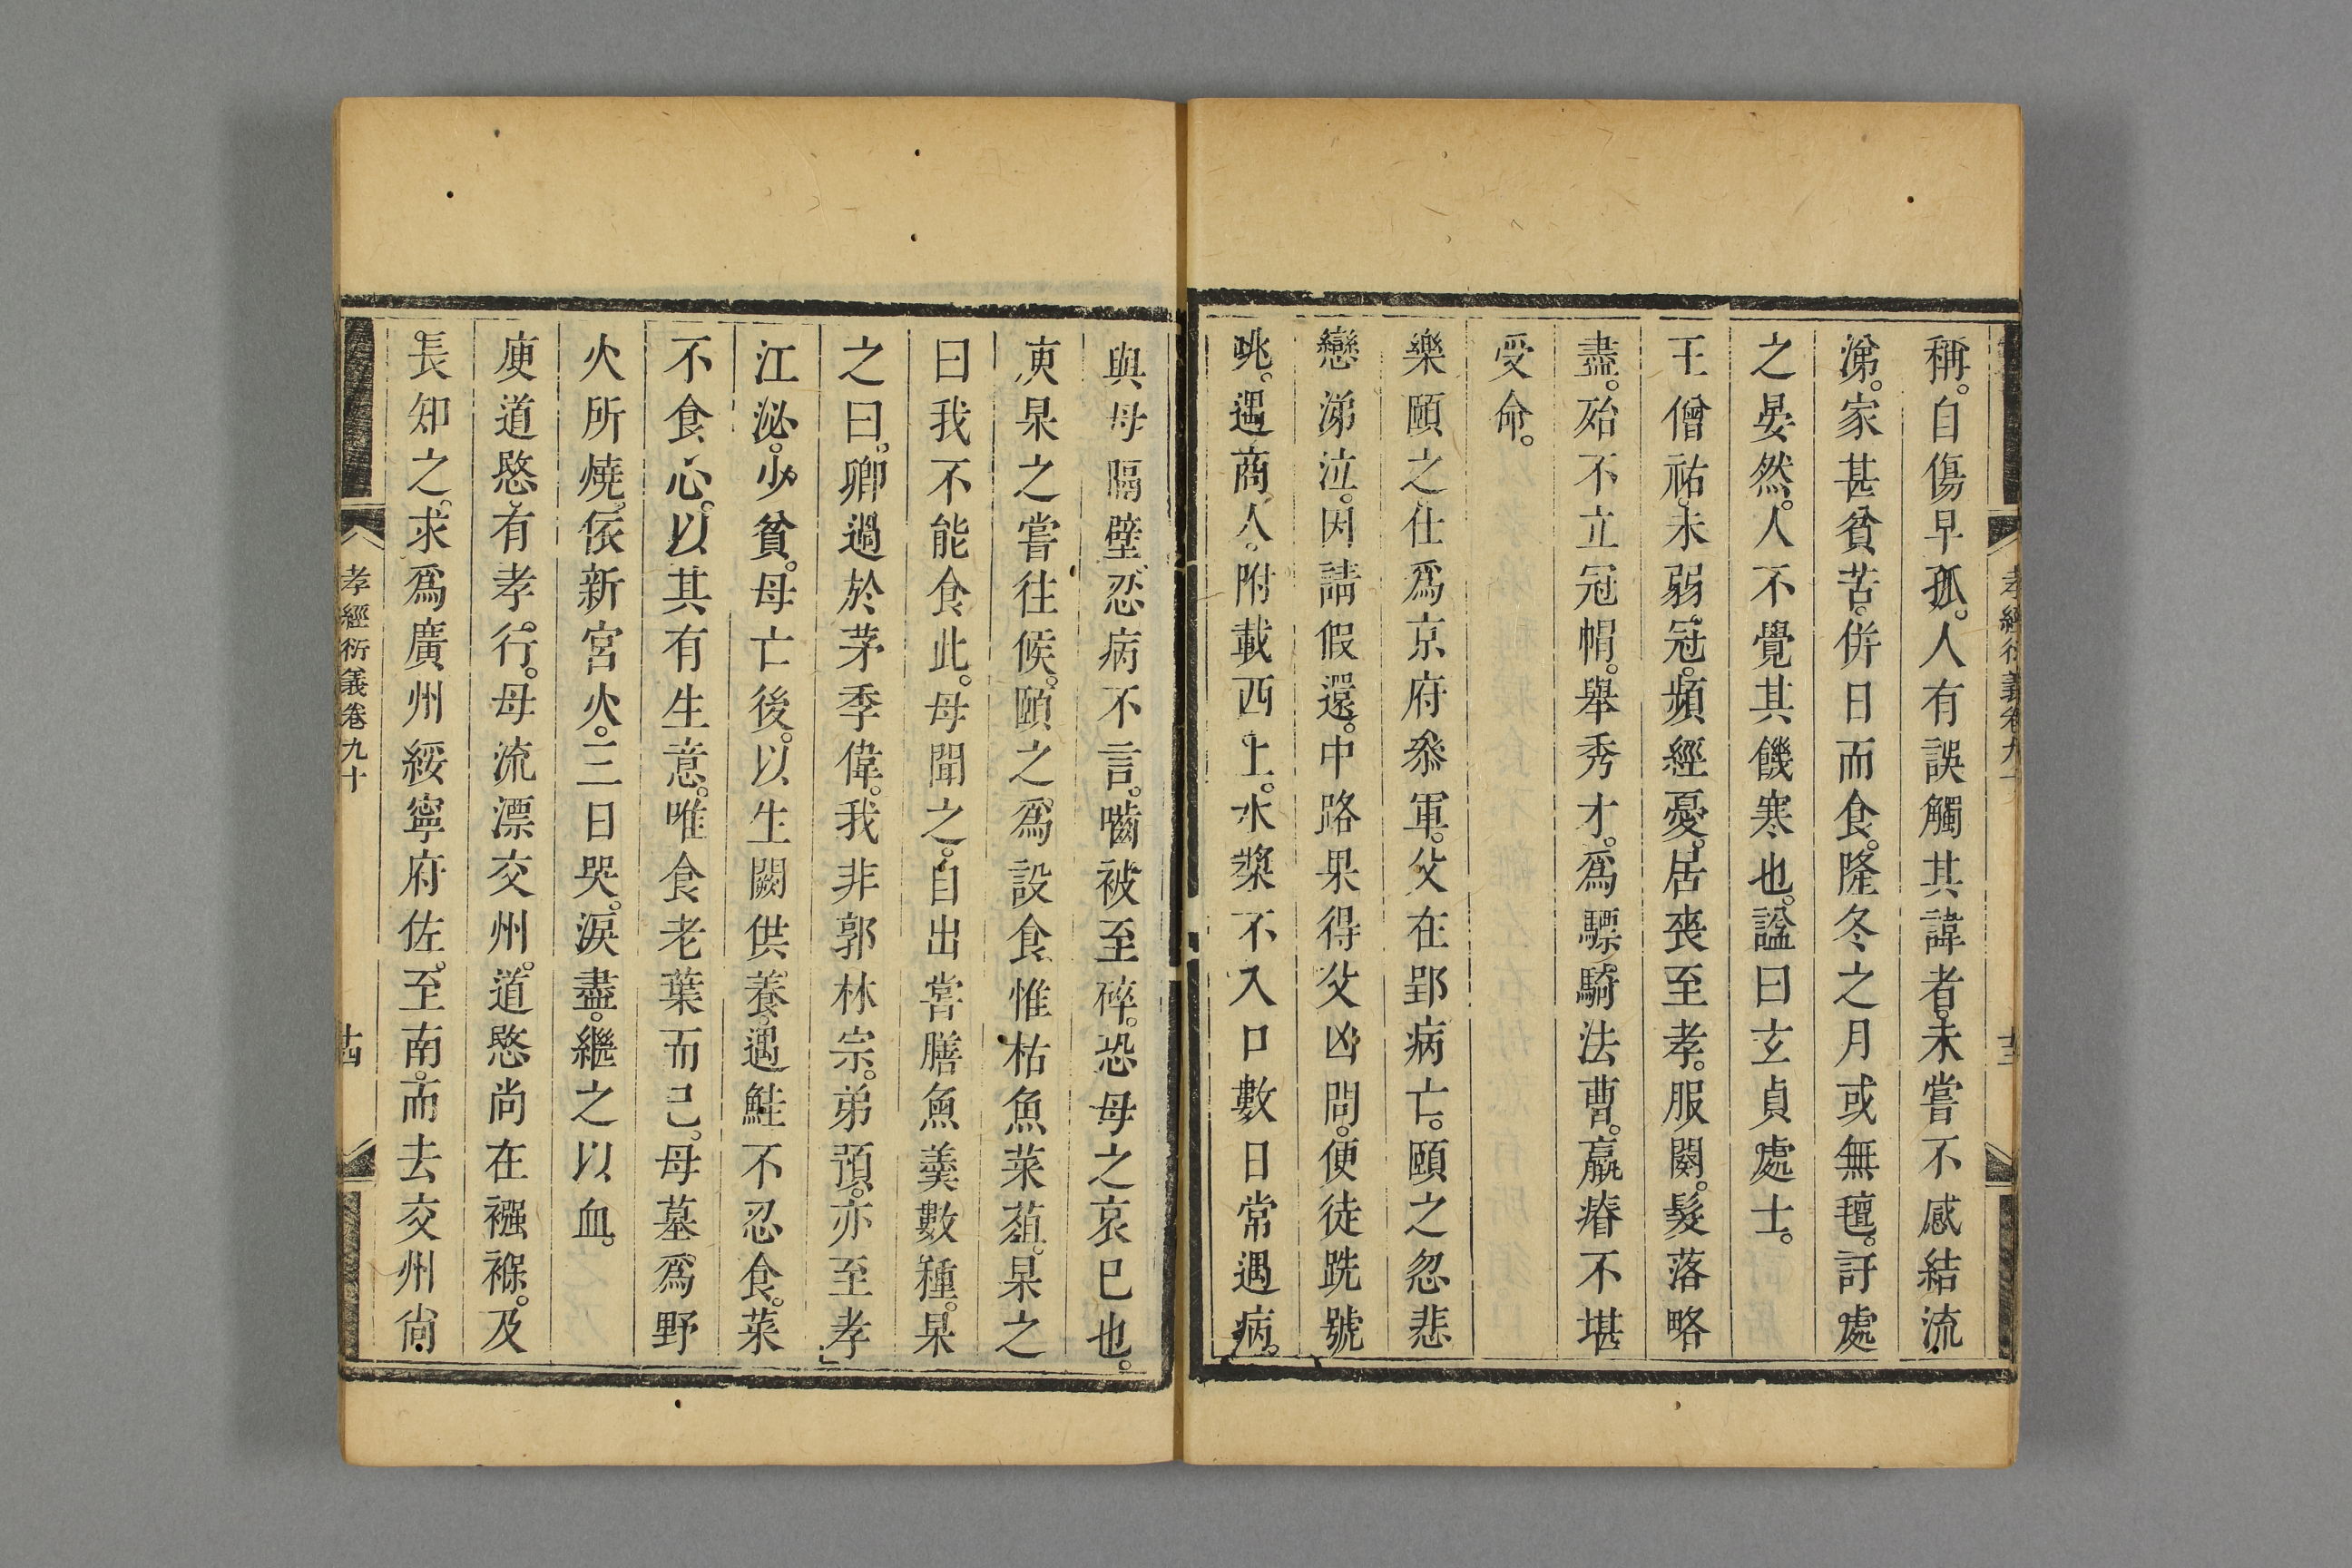 稱。自傷早孤。人有誤觸其諱者。未嘗不感結流
涕。家甚貧苦。併日而食。隆冬之月或無氊。訝處
之晏然。人不覺其饑寒也。謚曰玄貞處士。
王僧祐。未弱冠。頻經憂。居喪至孝。服闋。髮落略
盡。殆不立冠帽。舉秀才。爲驃騎法曹。羸瘠不堪
受命。
樂頤之。仕爲京府叅軍。父在郢病亡。頤之忽悲
戀涕泣。因請假還。中路果得父凶問。便徒跣號
咷。遇商人。附載西上。水漿不入口數日常遇病。
與母隔壁。忍病不言。嚙被至碎。恐母之哀已也。
庾杲之嘗往候。頤之爲設食惟枯魚菜葅。杲之
曰我不能食此。母聞之。自出嘗膳魚羹數種。杲
之曰。卿過於茅季偉。我非郭林宗。弟預。亦至孝
江泌。少貧。母亡後。以生闕供養。遇鮭不忍食。菜
不食心。以其有生意。唯食老葉而已。母墓爲野
火所燒。依新宮火。三日哭。淚盡。繼之以血。
庾道愍。有孝行。母流漂交州。道愍尚在襁褓。及
長知之。求爲廣州綏寧府佐。至南。而去交州尙
孝經衍義卷九十
十四